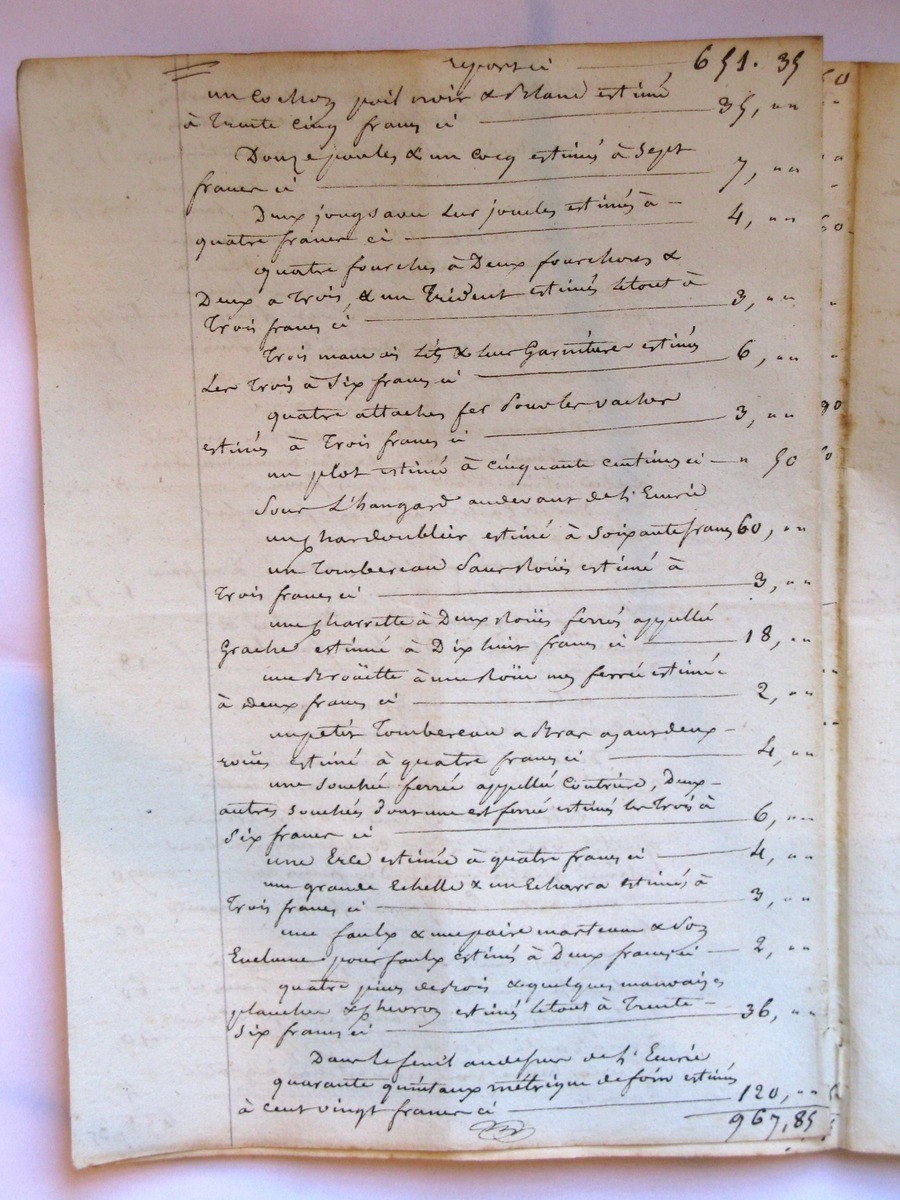 report ci 651. 35
un cochon poil noir & Blanc estimé
à Trente cinq francs ci 35, ""
Douze poules & un cocq estimés à Sept
francs ci 7, ""
Deux jougs avec leur joucles estimés à
quatre francs ci 4, ""
quatre fourches à Deux fourchons &
Deux à Trois, & un Trident estimés letout à
Trois francs ci 3, ""
Trois mauvais Lits & leur Garniture estimés
Les Trois à Six francs ci 6, ""
quatre attaches fer Pour les vaches
estimés à Trois francs ci 3, ""
un plot estimé à cinquante centimes ci " 50
Sous L'hangard audevant de l'Ecurie
un chardoublier estimé à Soixante francs 60, ""
un Tombereau Sans Roües estimé à
Trois francs ci 3, ""
une charrette à Deux Roües ferrés appellé
Grache estimé à Dix huit francs ci 18, ""
une Broüette à une Roüe non ferrée estimée
à Deux francs ci 2, ""
un petit Tombereau a Bras ayant deux
roües estimé à quatre francs ci 4, ""
une Souchée ferrée appellé Coutrière, Deux
autres Souchées dont une est ferré estimés les Trois à
Six francs ci 6, ""
une Erce estimée à quatre francs ci 4, ""
une grande Echelle & un Echarra estimés à
Trois francs ci 3, ""
une faulx & une paire marteau & Son
Enclume pour faulx estimés à Deux francs ci 2, ""
quatre pieces de Bois & quelques mauvaises
planches & chevrons estimés letout à Trente
Six francs ci 36, ""
Dans le fenil audessus de l'Ecurie
quarante quintaux métrique de foin estimés
à cent vingt francs ci 120, ""
967, 85